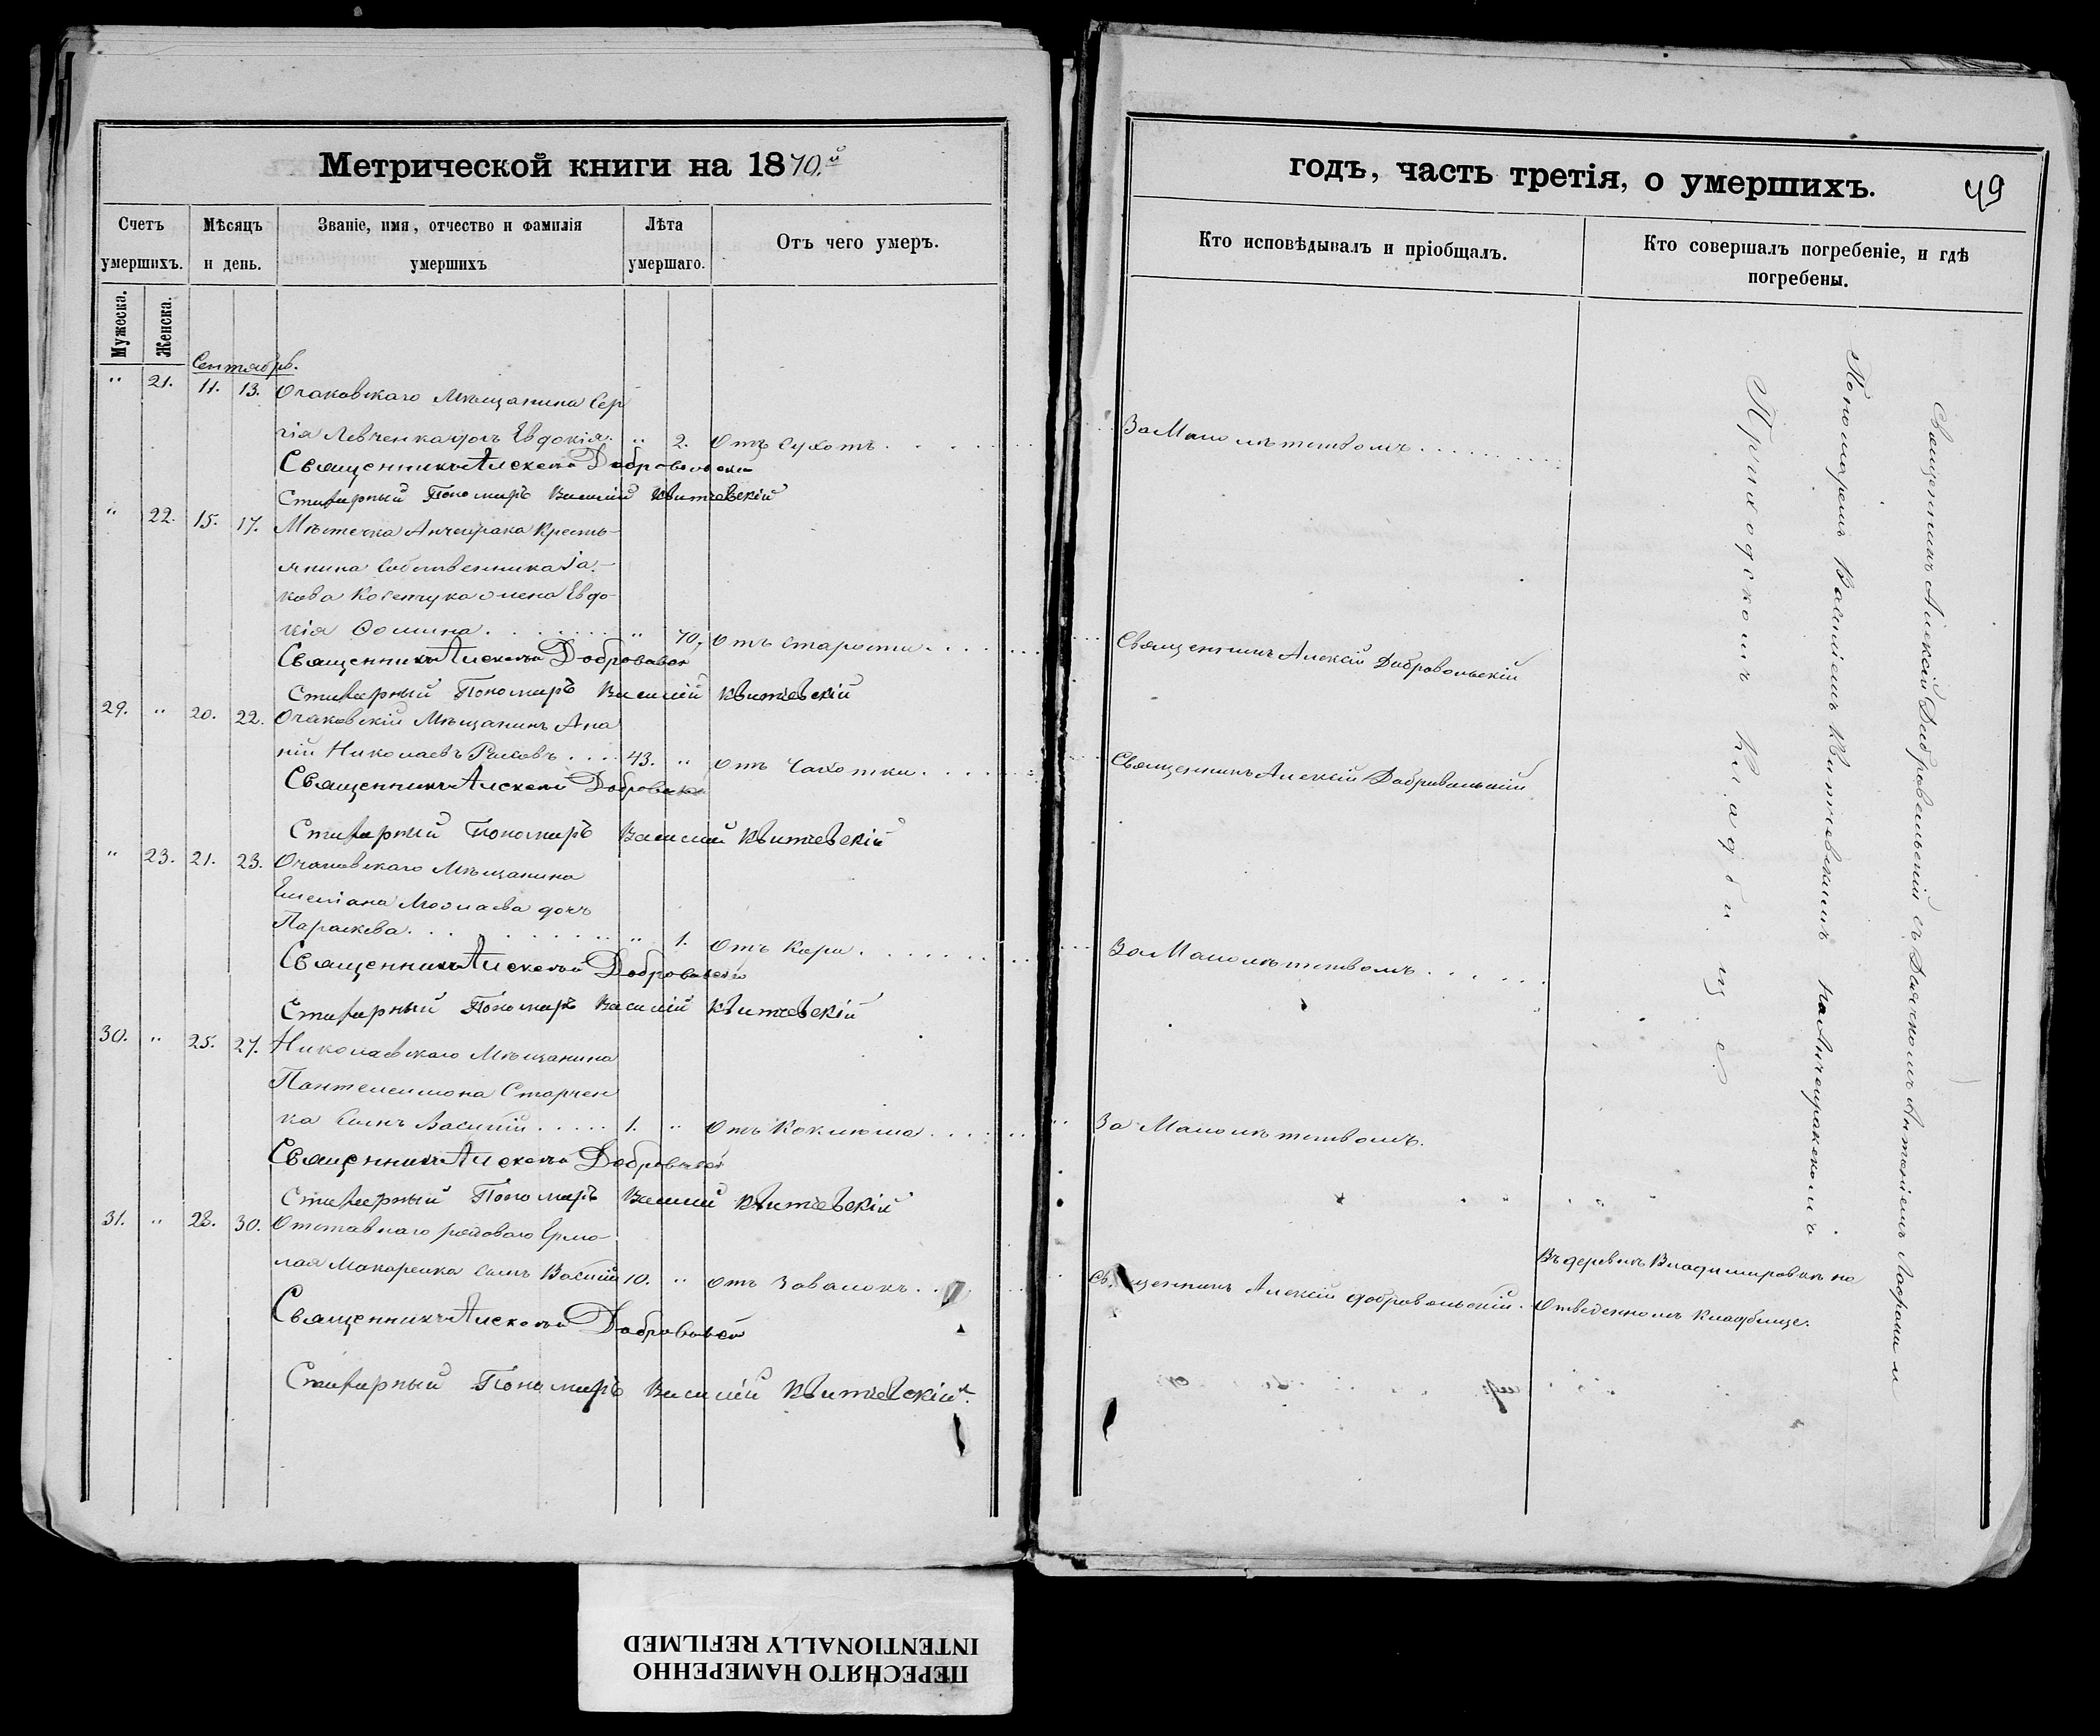 Метрической книги на 1870.й
Счетъ умершихъ.
Мѣсяцъ и день.
Званіе, имя, отчество и фамилія умершихъ
Лѣта умершаго.
Отъ чего умеръ.
Мужеска.
Женска.
Сентябрь.
" 21. 11. 13. Очаковскаго Мѣщанина Сер
гія Левченка дочь Евдокія. " 2. Отъ Сухотъ
Священникъ Алексѣй Добровольскій
Стихарный Пономарь Василій Квитневскій
" 22. 15. 17. Мѣстечка Анчекрака Кресть-
янина Собственника Іа-
кова Косенчука жена Евдо-
кія Фомина " 70. Отъ Старости
Священникъ Алексѣй Добровольскій
Стихарный Пономарь Василій Квитневскій
29. " 20. 22. Очаковскій Мѣщанинъ Ана
ній Николаевъ 43. " Отъ Чахотки
Священникъ Алексѣй Добровольскій
Стихарный Пономарь Василій Квитневскій
" 23. 21. 23. Очаковскаго Мѣщанина
Емеліана дочь
Параскева " 1. Отъ Кори
Священникъ Алексѣй Добровольскій
Стихарный Пономарь Василій Квитневскій
30. " 25. 27. Николаевскаго Мѣщанина
Пантелеимона Старчен
ка Сынъ Василій 1. " Отъ Коклюша
Священникъ Алексѣй Добровольскій
Стихарный Пономарь Василій Квитневскій
31. " 28. 30. Отставнаго рядоваго Ермо-
лая Макаренка сынъ Василій 10. " Отъ Завалокъ
Священникъ Алексѣй Добровольскій
Стихарный Пономарь Василій Квитневскій
годъ, часть третія, о умершихъ.
49
Кто исповѣдывалъ и пріобщалъ.
Кто совершалъ погребеніе, и гдѣ погребены.
За Малолѣтствомъ
Священникъ Алексій Добровольскій
Священникъ Алексій Добровольскій
За Малолѣтствомъ
За Малолѣтствомъ.
Священникъ Алексій Добровольскій.
Въ деревнѣ Владимировкѣ на
Отведенномъ Кладбище.
Священникъ Алексій Добровольскій съ Дьячкомъ Антоніемъ и
Пономаремъ Василіемъ Квитневскимъ на Анчекракскомъ
Приходскомъ Кладбище.
ПЕРЕСНЯТО НАМЕРЕННО
INTENTIONALLY REFILMED